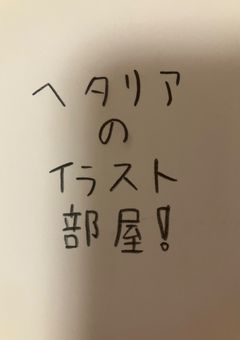 ヘタリア
の
イラスト
部屋!